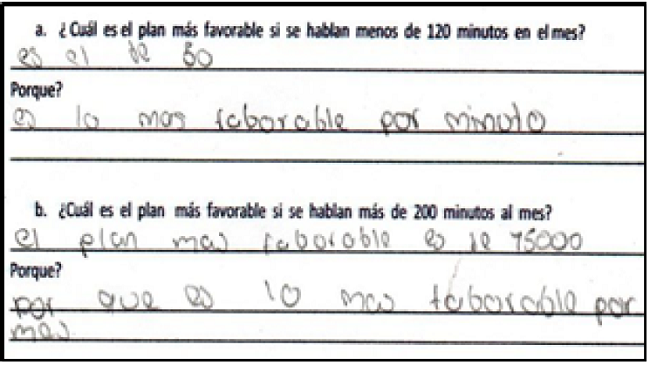 a. ¿Cuál es el plan más favorable si se hablan menos de 120 minutos en el mes?
es el de 50
Porque?
es lo mas faborable por minuto
b. ¿Cuál es el plan más favorable si se hablan más de 200 minutos al mes?
el plan mas faborable es de 75000
Porque?
por que es lo mas faborable por
mes